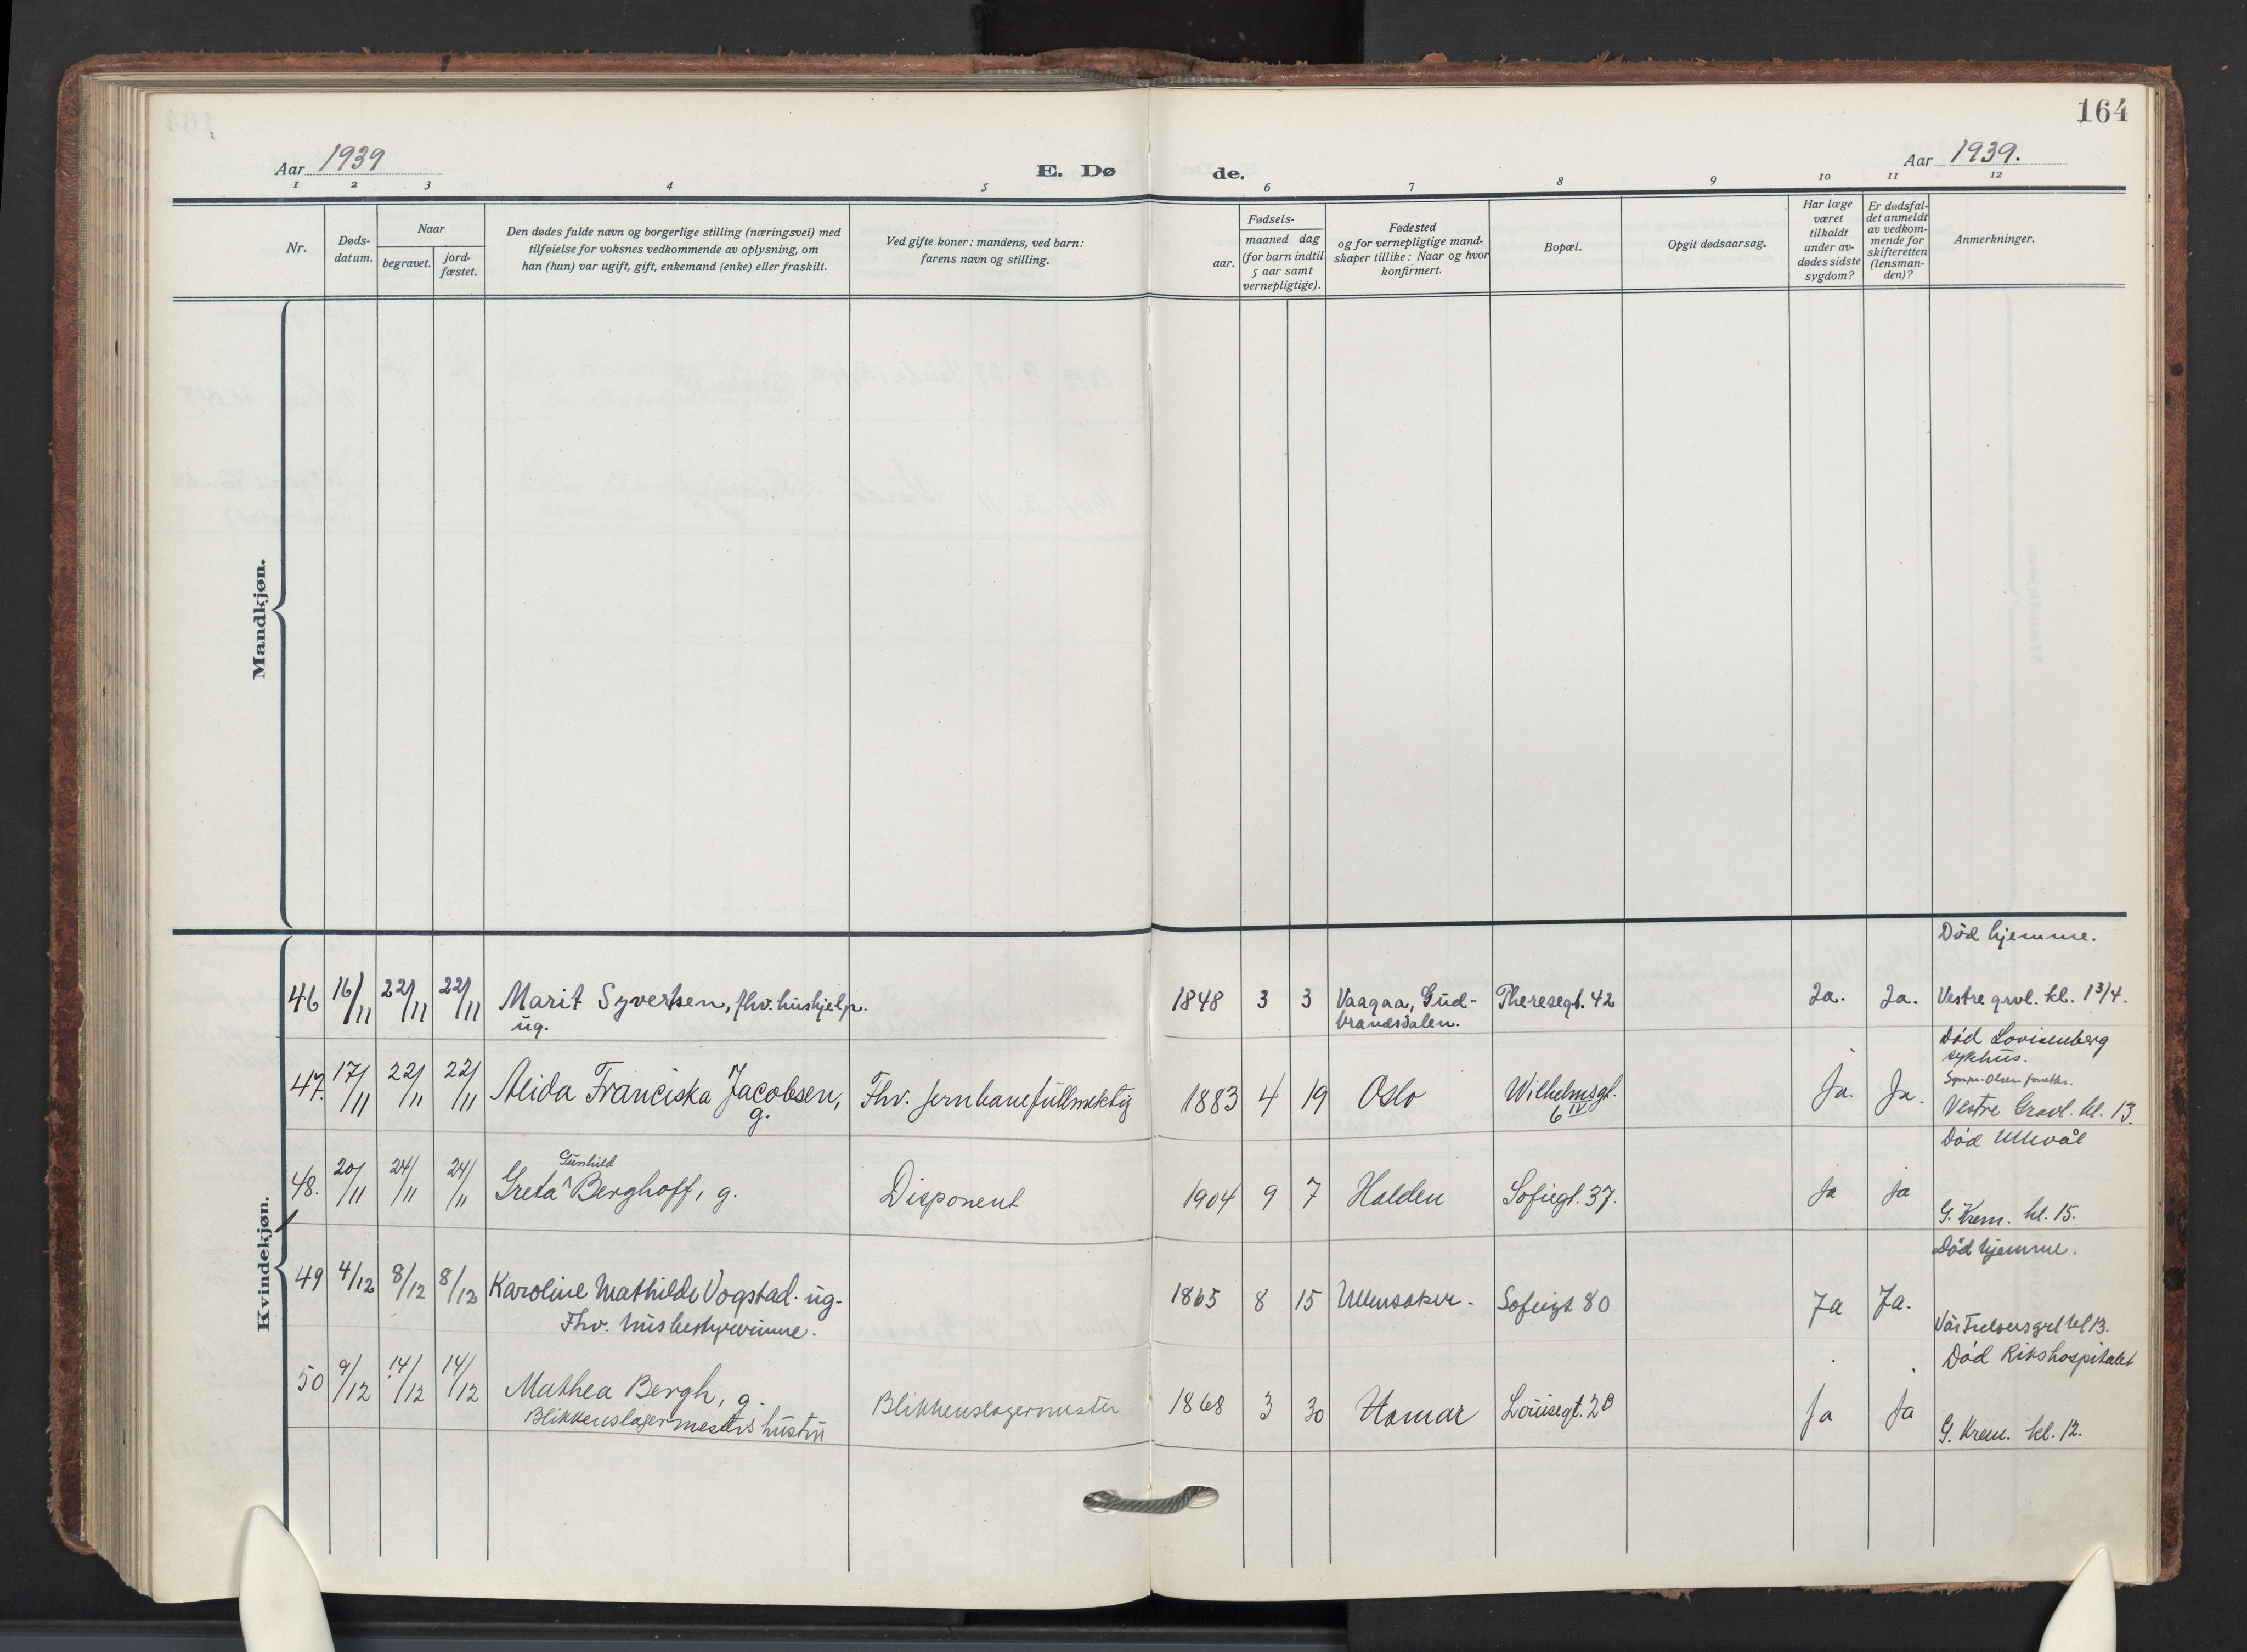 164
Aar 1939
E. Dø
de.
Aar 1939.
1 2 3 4 5 6 7 8 9 10 11 12
Nr.
Døds-
datum.
Naar
begravet.
jord-
fæstet.
Den dødes fulde navn og borgerlige stilling (næringsvei) med
tilføielse for voksnes vedkommende av oplysning, om
han (hun) var ugift, gift, enkemand (enke) eller fraskilt.
Ved gifte koner: mandens, ved barn:
farens navn og stilling.
Fødsels-
aar.
maaned dag
(for barn indtil
5 aar samt
vernepligtige).
Fødested
og for vernepligtige mand-
skaper tillike: Naar og hvor
konfirmert.
Bopæl.
Opgit dødsaarsag.
Har læge
været
tilkaldt
under av-
dødes sidste
sygdom?
Er dødsfal-
det anmeldt
av vedkom-
mende for
skifteretten
(lensman-
den)?
Anmerkninger.
Mandkjøn.
Kvindekjøn.
Død hjemme.
46 16/11 22/11 22/11 Marit Syvertsen, fhv. hushjelp. 1848 3 3 Vaagaa, Gud- Theresegt. 42 Ja. Ja. Vestre gravl. kl. 1 3/4.
ug. brandsdalen.
Død Lovisenberg
sykhus.
47. 17/11 22/11 22/11 Alida Franciska Jacobsen, Fhv. jernbanefullmektig 1883 4 19 Oslo Wilhelmsgt. Ja. Ja.
g. 6 IV Vestre Gravl. kl. 13.
Død Ullevål
Gunhild
48. 20/11 24/11 24/11 Greta ^ Berghoff, g. Disponent 1904 9 7 Halden Sofiegt. 37. ja ja
G. Krem. kl. 15.
Død hjemme.
49 4/12 8/12 8/12 Karoline Mathilde Vogstad. ug. 1865 8 15 Ullensaker. Sofiegt 80 Ja Ja.
Fhv. husbestyrerinne. Vår Frelsers grl kl 13.
Død Rikshospitalet
50 9/12 14/12 14/12 Mathea Bergh, g. Blikkenslagermester 1868 3 30 Hamar Louisegt. 2B ja ja
Blikkenslagermesters hustru G. Krem. kl. 12.